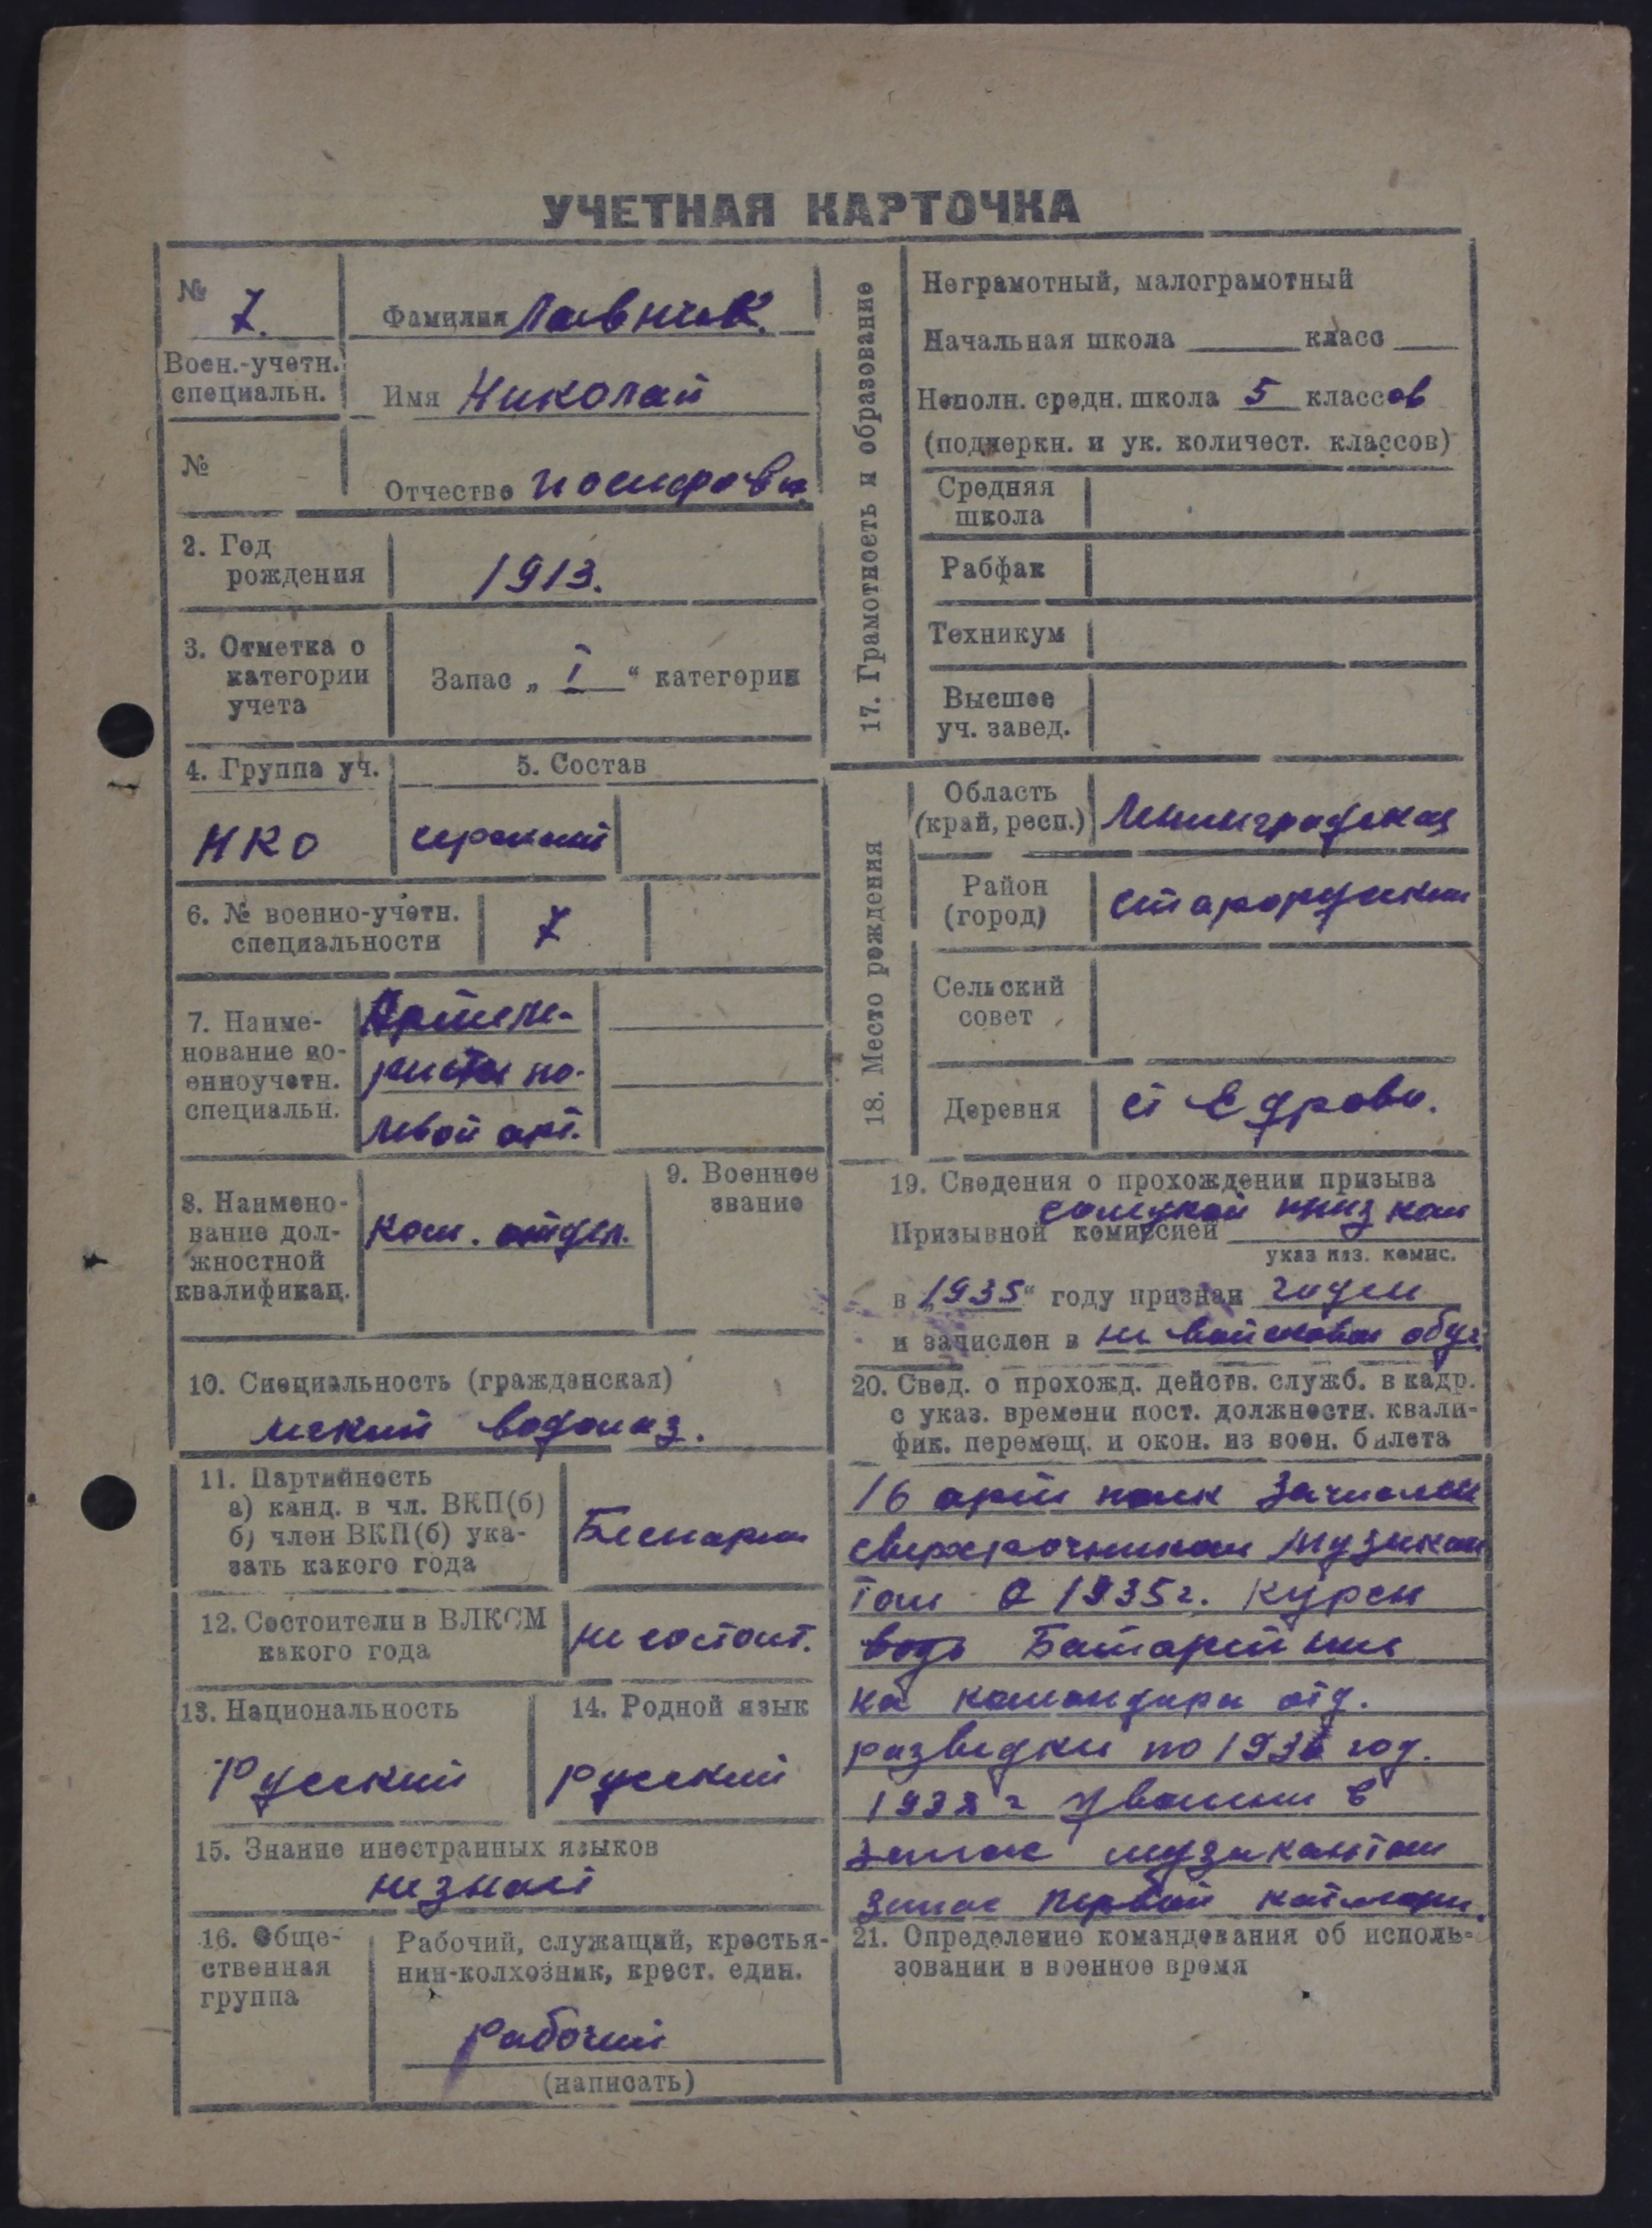 УЧЕТНАЯ КАРТОЧКА
№ 7.
Фамилия Лавник.
Воен.-учетн.
специальн.
Имя Николай
№
Отчество иосифови.
2. Год
рождения
1913.
3. Отметка о
категории
учета
Запас „ I “ категории
4. Группа уч.
5. Состав
НКО
6. № военно-учетн.
специальности
7
7. Наиме-
нование во-
енноучетн.
специальн.
Артеле-
ристы по-
левой арт.
8. Наимено-
вание дол-
жностной
квалификац.
ком. отдел.
9. Военное
звание
10. Специальность (гражданская)
легкий водолаз.
11. Партийность
а) канд. в чл. ВКП(б)
б) член ВКП(б) ука-
зать какого года
Беспарти
12. Состоители в ВЛКСМ
какого года
не состоит.
13. Национальность
Русский
14. Родной язык
русский
15. Знание иностранных языков
не знает
16. Обще-
ственная
группа
Рабочий, служащий, крестья-
нин-колхозник, крест. един.
рабочий
(написать)
17. Грамотность и образование
Неграмотный, малограмотный
Начальная школа класс
Неполн. средн. школа 5 классов
(подчеркн. и ук. количест. классов)
Средняя
школа
Рабфак
Техникум
Высшее
уч. завед.
18. Место рождения
Область
(край, респ.)
Ленинградская
Район
(город)
старорусский
Сельский
совет
Деревня
ст Едрово.
19. Сведения о прохождении призыва
Призывной комиссией
указ наз. комис.
в „1935“ году признан годен
и зачислен в не войсковой обуч.
20. Свед. о прохожд. действ. служб. в кадр.
с указ. времени пост. должностн. квали-
фик. перемещ. и окон. из воен. билета
16 арт полк зачислен
сверхсрочником музыкан
том 1935г. курсы
Батарей
на командира отд.
разведки по 1936 год.
1938 г уволен в
запас музыкантом
запас первой категори.
21. Определение командования об исполь-
зовании в военное время